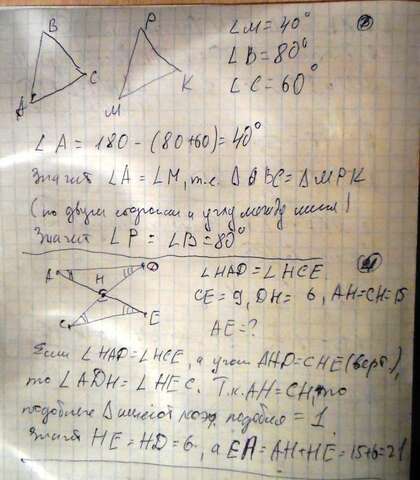 B
C
A
P
K
M
∠M = 40°
∠B = 80°
∠C = 60°
∠A = 180 - (80+60) = 40°
Значит ∠A = ∠M, т.е. ΔABC = ΔMPK
(по двум сторонам и углу между ними)
Значит ∠P = ∠B = 80°
A
H
D
C
E
∠HAD = ∠HCE.
CE = 9, DH = 6, AH=CH=15
AE = ?
Если ∠HAD = ∠HCE, а углы AHD = CHE (верт),
то ∠ADH = ∠HEC. Т.к. AH = CH, то
подобные Δ имеют коэф. подобия = 1
Значит HE = HD = 6, а EA = AH + HE = 15+6 = 21